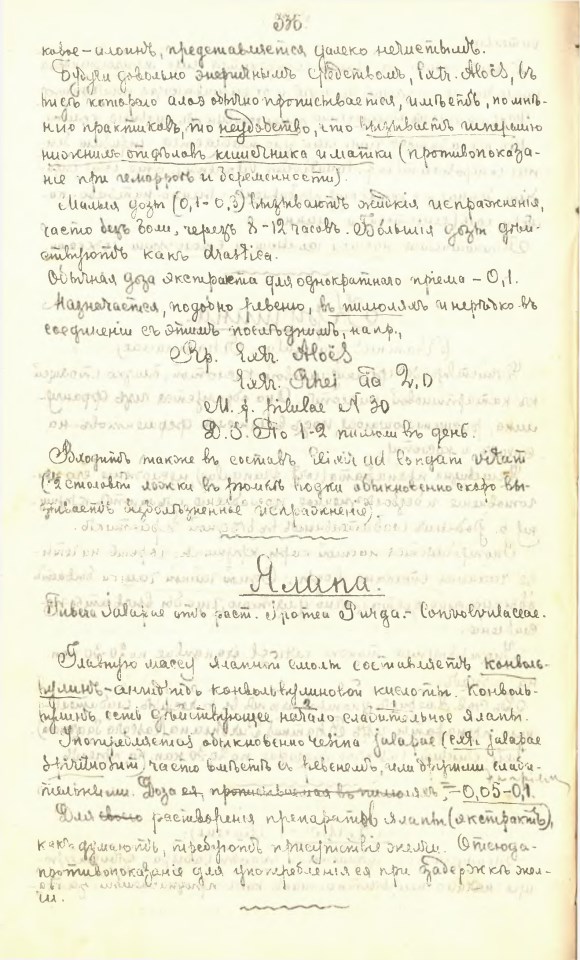 336.
ковое – алоинъ, представляется далеко нечистымъ.
Будучи довольно энергичнымъ средствомъ, Extr. Aloës, въ
видѣ котораго алоэ обычно прописывается, имѣетъ, по мнѣ-
нію практиковъ, то неудобство, что вызываетъ гиперэмію
нижнихъ отдѣловъ кишечника и матки (противопоказа-
ніе при геморроѣ и беременности).
Малыя дозы (0,1 – 0,3) вызываютъ жидкія испражненія,
часто безъ боли, черезъ 8 – 12 часовъ. Большія дозы дѣй-
ствуютъ какъ drastica.
Обычная доза экстракта для однократнаго пріема – 0,1.
Назначается, подобно ревеню, въ пилюляхъ и нерѣдко въ
соединеніи съ этимъ послѣднимъ, напр.,
Rp. Extr. Aloës
Extr. Rhei āā 2,0
M. f. pilulae N 30
D. S. По 1-2 пилюли въ день.
Входитъ также въ составъ Elixir ad longam vitam
столовой ложки въ рюмкѣ водки обыкновенно скоро вы-
зываетъ безболѣзненное испражненіе).
Ялапа.
Tubera Jalapae отъ раст. Ipomea Purga. – Convolvulaceae.
Главную массу ялапной смолы составляетъ конволь-
вулинъ – ангидридъ конвольвулиновой кислоты. Конволь-
вулинъ есть дѣйствующее начало слабительное ялапы.
Употребляется обыкновенно resina jalapae (extr. jalapae
spirituosum), часто вмѣстѣ съ ревенемъ, или другими слаби-
тельными. Доза ея, прописываемая въ пилюляхъ, – 0,05 – 0,1.
Для растворенія препаратовъ ялапы (экстрактъ),
какъ думаютъ, требуютъ присутствіе желчи. Отсюда –
противопоказаніе для употребленія ея при задержкѣ жел-
чи.